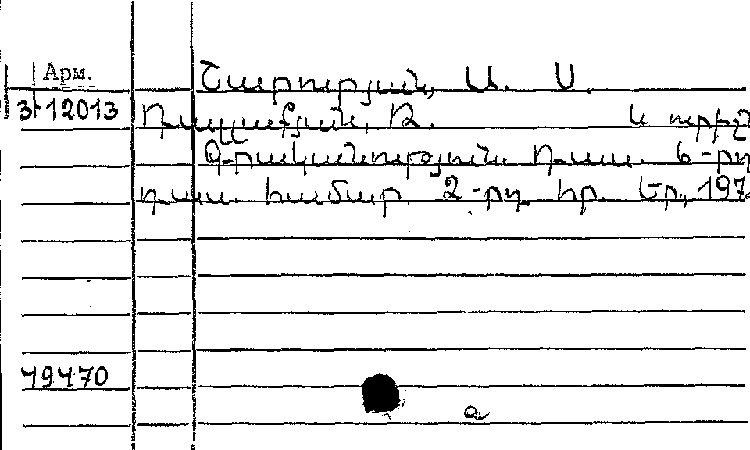 Арм.
Շարուրյան, Ա. Ս.
3-12013 Դալլաքյան, Ռ. և ուրիշ
Գրականություն. Դաս. 6-րդ
դաս. համար. 2-րդ հր. Եր., 197
49470
a